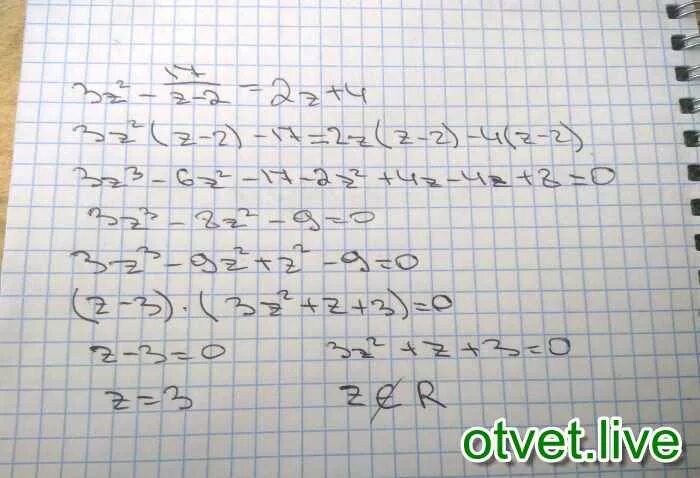 3z² - 17/(z-2) = 2z+4
3z²(z-2) - 17 = 2z(z-2) - 4(z-2)
3z³ - 6z² - 17 - 2z² + 4z - 4z + 8 = 0
3z³ - 8z² - 9 = 0
3z³ - 9z² + z² - 9 = 0
(z-3)·(3z²+z+3)=0
z-3=0 3z²+z+3=0
z=3 z∉R
otvet.live